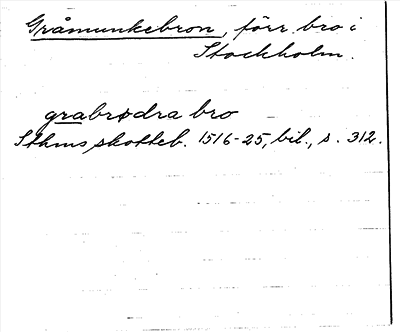 Gråmunkebron, förr. bro i
Stockholm.
grabrødra bro
Sthms skotteb. 1516-25, bil., s. 312.